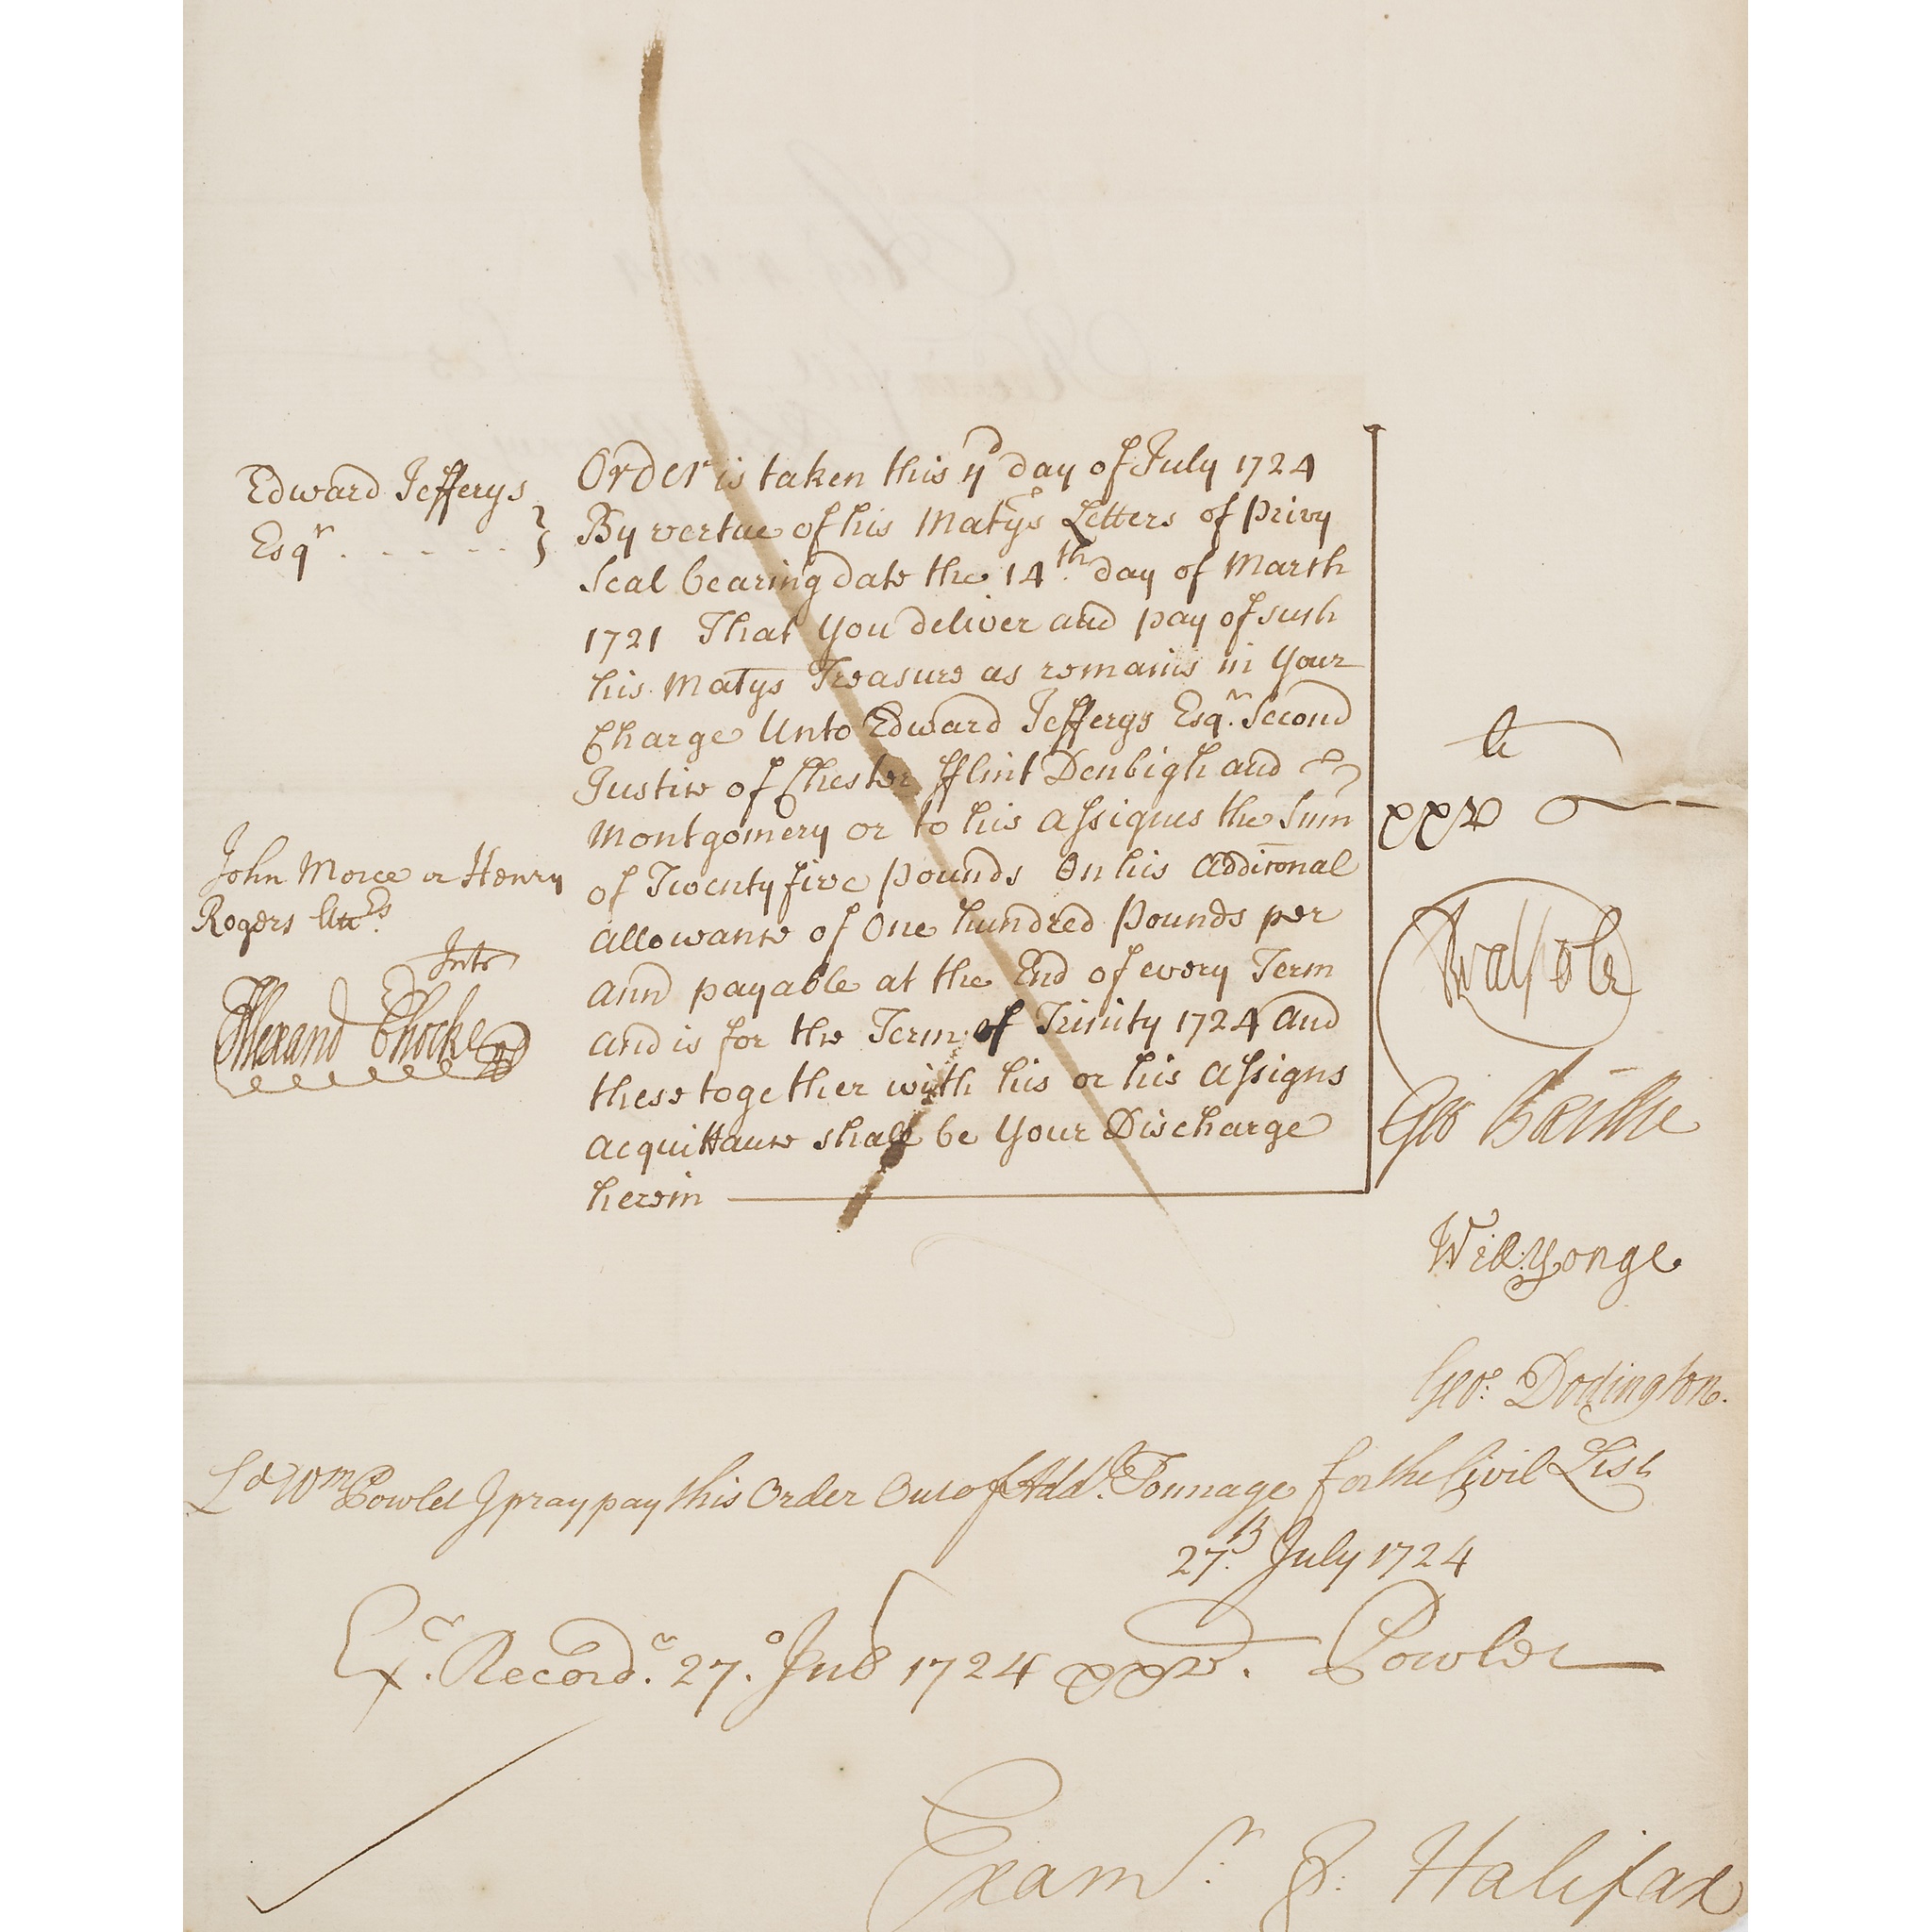 Edward Jefferys
Esqr. - - - - -
Order is taken this day of July 1724
By vertue of his Matys Letters of Privy
Seal bearing date the 14th. day of March
1721 That You deliver and pay of such
his Matys Treasure as remains in Your
Charge Unto Edward Jefferys Esqr. Second
Justice of Chester fflint Denbigh and
Montgomery or to his Assignes the Sum
of Twenty five Pounds On his Additonal
Allowance of One hundred Pounds per
Ann payable at the End of every Term
And is for the Term of Trinity 1724 And
these together with his or his Assigns
Acquittance shall be Your Discharge
herein
John Morce or Henry
Rogers Att
Intr
Alexand Chocke
li
xxv
RWalpole
Geo Baillie
Will: Yonge
Geo: Dodington.
Ld Wm Powlet I pray pay this Order Out of Addl. Tonnage for the Civil List
27th. July 1724
Ex. Record. 27.o Jul 1724 xxv. Powlet
Examr. p: Halifax